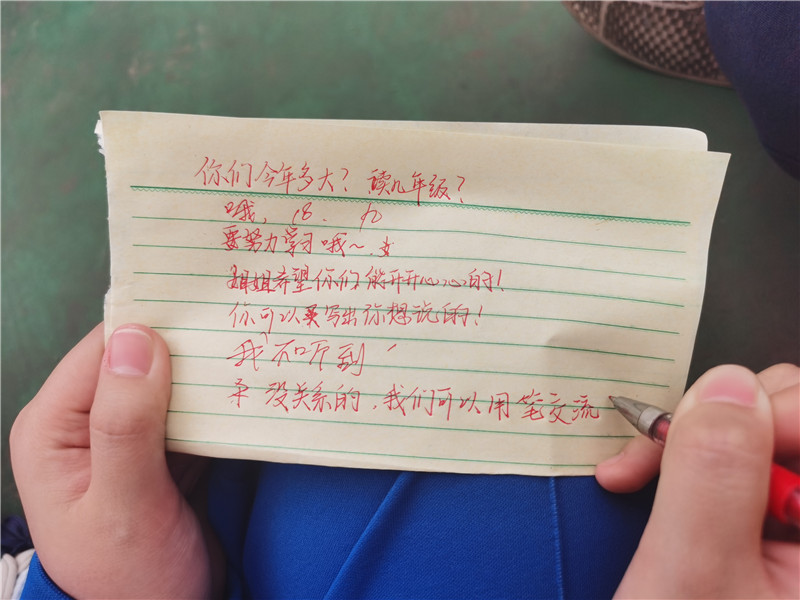 你们今年多大？读几年级？
哦，18. 九
要努力学习哦~.
姐姐希望你们能开开心心的！
你可以写出你想说的！
我不口斤到
没关系的，我们可以用笔交流